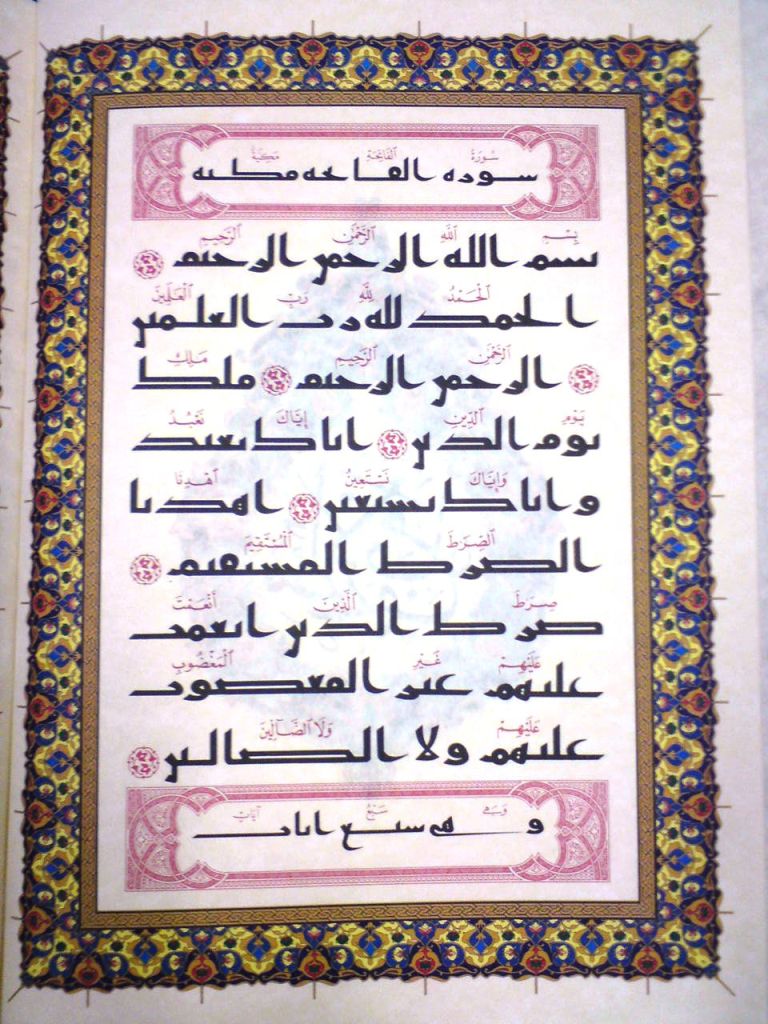 سُورَةُ الفَاتِحَةِ مَكِّيَّةٌ
سورة الفاتحة مكية
بِسْمِ اللَّهِ الرَّحْمَٰنِ الرَّحِيمِ
بسم الله الرحمن الرحيم
الْحَمْدُ لِلَّهِ رَبِّ الْعَٰلَمِينَ
الحمد لله رب العلمين
الرَّحْمَٰنِ الرَّحِيمِ مَٰلِكِ
الرحمن الرحيم ملك
يَوْمِ الدِّينِ إِيَّاكَ نَعْبُدُ
يوم الدين اياك نعبد
وَإِيَّاكَ نَسْتَعِينُ اهْدِنَا
واياك نستعين اهدنا
الصِّرَٰطَ الْمُسْتَقِيمَ
الصرط المستقيم
صِرَٰطَ الَّذِينَ أَنْعَمْتَ
صرط الذين انعمت
عَلَيْهِمْ غَيْرِ الْمَغْضُوبِ
عليهم غير المغضوب
عَلَيْهِمْ وَلَا الضَّآلِّينَ
عليهم ولا الضالين
وَهِيَ سَبْعُ آيَاتٍ
وهي سبع ايات